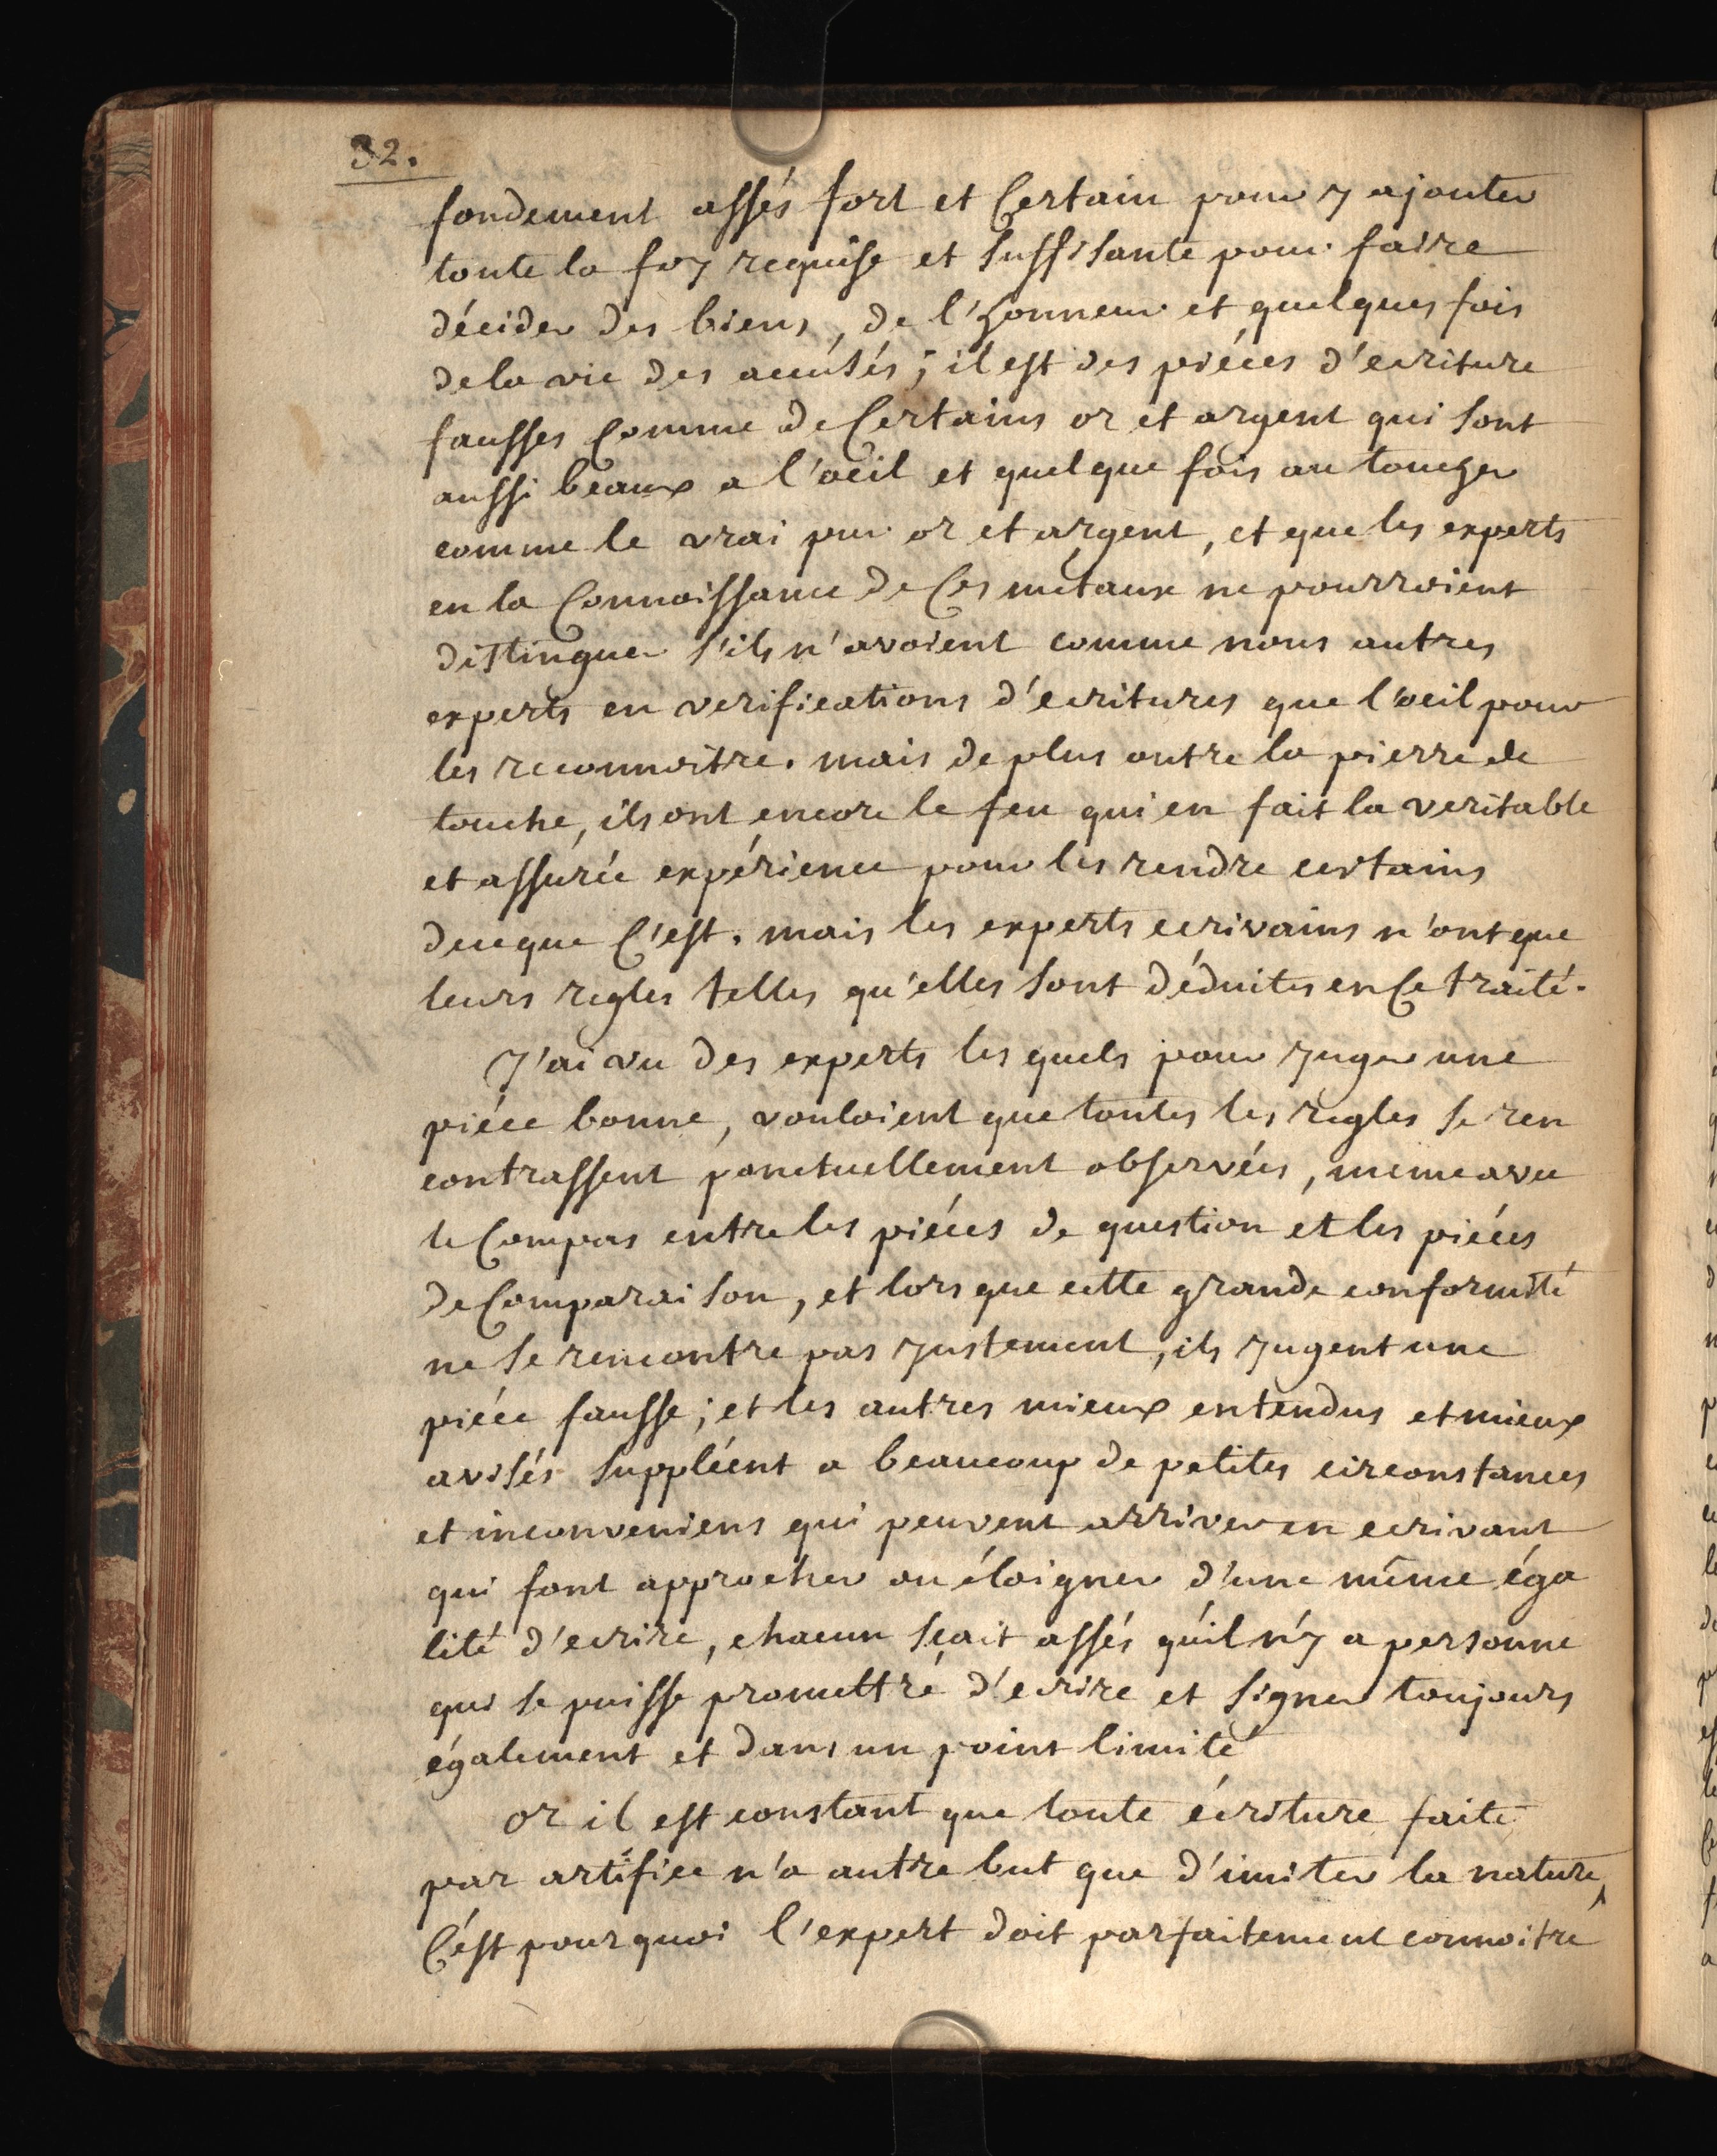 32.
fondement assés fort et Certain pour y ajouter
toute la foy requise et suffisante pour faire
décider des biens, de l'honneur et quelques fois
de la vie des accusés; il est des piéces d'ecriture
fausses Comme de Certains or et argent qui sont
aussi beaux a l'oeil et quelque fois au toucher
comme le vrai pur or et argent, et que les experts
en la Connoissance de Ces métaux ne pourroient
distinguer s'ils n'avoient comme nous autres
experts en verifications d'ecritures que l'oeil pour
les reconnoitre. mais de plus outre la pierre de
touche, ils ont encore le feu qui en fait la veritable
et assurée expérience pour les rendre certains
de ce que C'est. mais les experts ecrivains n'ont que
leurs regles telles qu'elles sont déduites en Ce traité.
J'ai vu des experts les quels pour juger une
piéce bonne, vouloient que toutes les regles se ren
contrassent ponctuellement observées, meme avec
le Compas entre les piéces de question et les piéces
de Comparaison, et lors que cette grande conformité
ne se rencontre pas justement, ils jugent une
piéce fausse; et les autres mieux entendus et mieux
avisés suppléent a beaucoup de petites circonstances
et inconveniens qui peuvent arriver en ecrivant
qui font approcher ou éloigner d'une même éga
lité d'ecrire, chacun sçait assés qu'il n'y a personne
qui se puisse promettre d'ecrire et signer toujours
également et dans un point limité
or il est constant que toute écriture faite
par artifice n'a autre but que d'imiter la nature,
C'est pour quoi l'expert doit parfaitement connoitre